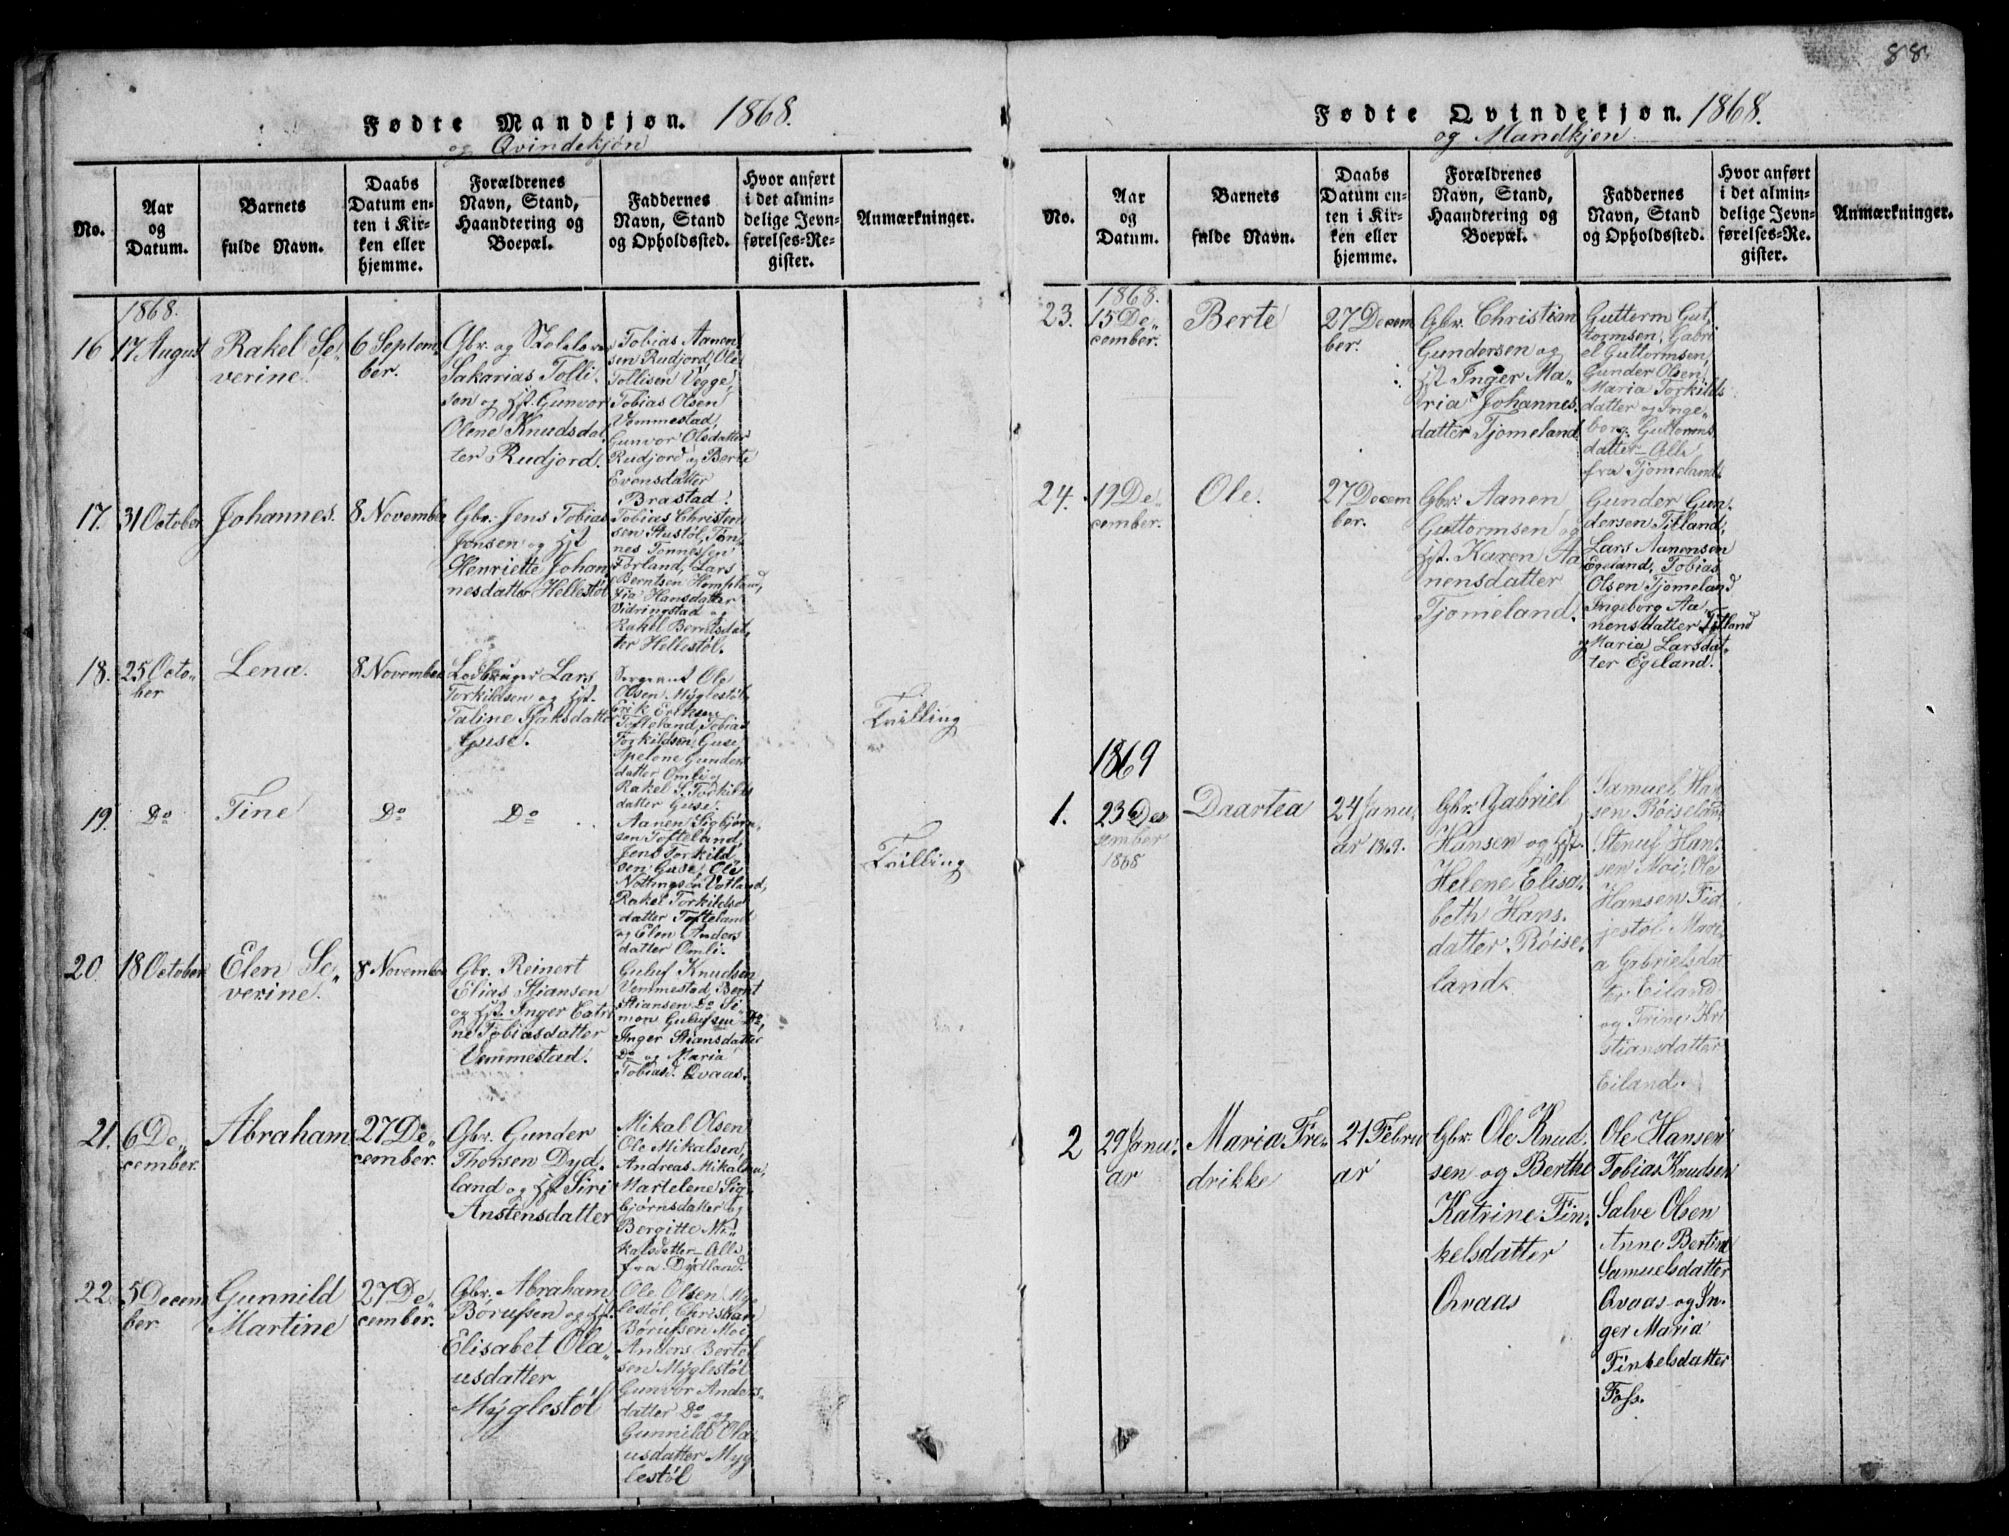 88.
Fødte Mandkjøn. 1868.
og Qvindekjøn
No.
Aar
og
Datum.
Barnets
fulde Navn.
Daabs
Datum en-
ten i Kir-
ken eller
hjemme.
Forældrenes
Navn, Stand,
Haandtering og
Boepæl.
Faddernes
Navn, Stand
og Opholdssted.
Hvor anført
i det almin-
delige Jevn-
førelses-Re-
gister.
Anmærkninger.
1868.
16
17 August
Rakel Se„
verine.
6 Septem
ber.
Gbr. og
Sakarias Tolli
sen og Hst. Gunvor
Olene Knudsdat
ter Rudjord.
Tobias Aanen
sen Rudjord, Ole
Tollisen Vegge,
Tobias Olsen
Vemmestad,
Gunvor Olsdatter
Rudjord og Berte
Evensdatter
Brastad.
17.
31 October
Johannes.
8 November
Gbr. Jens Tobias
Jonsen og Hst
Henriette Johan
nesdatter Hellestøl
Tobias Christen
sen Stustøl, Tøn
nes Tønnessen
Førland, Lars
Berntsen
Hansdatter
Vidringstad og
Rakel Berntsdat
ter Hellestøl.
18.
25 Octo„
ber
Lena.
8 November
Lars
Torkildsen og Hst.
Taline Isaksdatter
Guse.
Sergeant Ole
Olsen Myglestøl
Erik Eriksen
Tofteland, Tobias
Torkildsen Guse,
Gunders
datter Omli og
Rakel T. Torkilds
datter Guse.
Tvilling
19.
Do
Tine
Do
Do
Aanen Sigbjørn
sen Tofteland,
Jens Torkild
sen Guse, Ole
Votland,
Rakel Torkilds
datter Tofteland
og Elen Anders
datter Omli.
Tvilling
20
18 October
Elen Se„
verine.
8 November
Gbr. Reinert
Elias Stiansen
og Hst. Inger Catri
ne Tobiasdatter
Vemmestad.
Guluf Knudsen
Vemmestad, Bernt
Stiansen Do Si
mon Gulufsen Do,
Inger Stiansdatter
Do og Maria
Tobiasd. Qvaas.
21.
6 De„
cember.
Abraham
27 De„
cember.
Gbr. Gunder
Thorsen Dyd.
land og Hst Siri
Anstensdatter
Mikal Olsen
Ole Mikalsen,
Andreas Mikalsen,
Martelene Sig
bjørnsdatter og
Bergitte Mi„
kalsdatter – Alle
fra Dydland.
22.
5 Decem
ber
Gunnild
Martine
27 De„
cember.
Gbr. Abraham
Børufsen og Hst.
Elisabet Ola„
usdatter
Myglestøl
Ole Olsen Myg
lestøl, Christian
Børufsen Moi
Anders Bertel
sen Myglestøl
Gunvor Anders„
datter Do og
Gunnild Ola„
usdatter Myg
lestøl
Fødte Qvindekjøn. 1868.
og Mandkjøn
No.
Aar
og
Datum.
Barnets
fulde Navn.
Daabs
Datum en-
ten i Kir-
ken eller
hjemme.
Forældrenes
Navn, Stand,
Haandtering og
Boepæl.
Faddernes
Navn, Stand
og Opholdssted.
Hvor anført
i det almin-
delige Jevn-
førelses-Re-
gister.
Anmærkninger.
1868.
23.
15 De„
cember.
Berte
27 Decem
ber.
Gbr. Christian
Gundersen og
Hst Inger Ma„
ria Johannes
datter Tjomeland
Guttorm Gut
tormsen, Gabri
el Guttormsen,
Gunder Olsen,
Maria Torkilds
datter og Inge„
borg Guttorms
datter – Alle
fra Tjomeland.
24.
19 De„
cember.
Ole.
27 Decem
ber.
Gbr. Aanen
Guttormsen og
Hst. Karen Aa
nensdatter
Tjomeland.
Gunder Gun„
dersen Titland,
Lars Aanensen
Egeland, Tobias
Olsen Tjomeland
Ingeborg Aa„
nensdatter Titland
og Maria Larsdat„
ter Egeland.
1869
1.
23 De„
sember
1868
Daartea
24 Janu„
ar 1869.
Gbr. Gabriel
Hansen og Hst.
Helene Elisa„
beth Hans„
datter Röise„
land.
Samuel Han
sen Röiseland
Stenuf Han„
sen Moi, Ole
Hansen Fid
jestøl Mari„
a Gabrielsdat
ter Eiland
og Trine Kri
stiansdatter
Eiland.
2
29 Janu„
ar
Maria Fre„
drikke
21 Febru
ar
Gbr. Ole Knud„
sen og Berthe
Katrine Fin„
kelsdatter
Qvaas
Ole Hansen
Tobias Knudsen
Salve Olsen
Anne Bertine
Samuelsdatter
Qvaas og In„
ger Maria
Finkelsdatter
Foss.